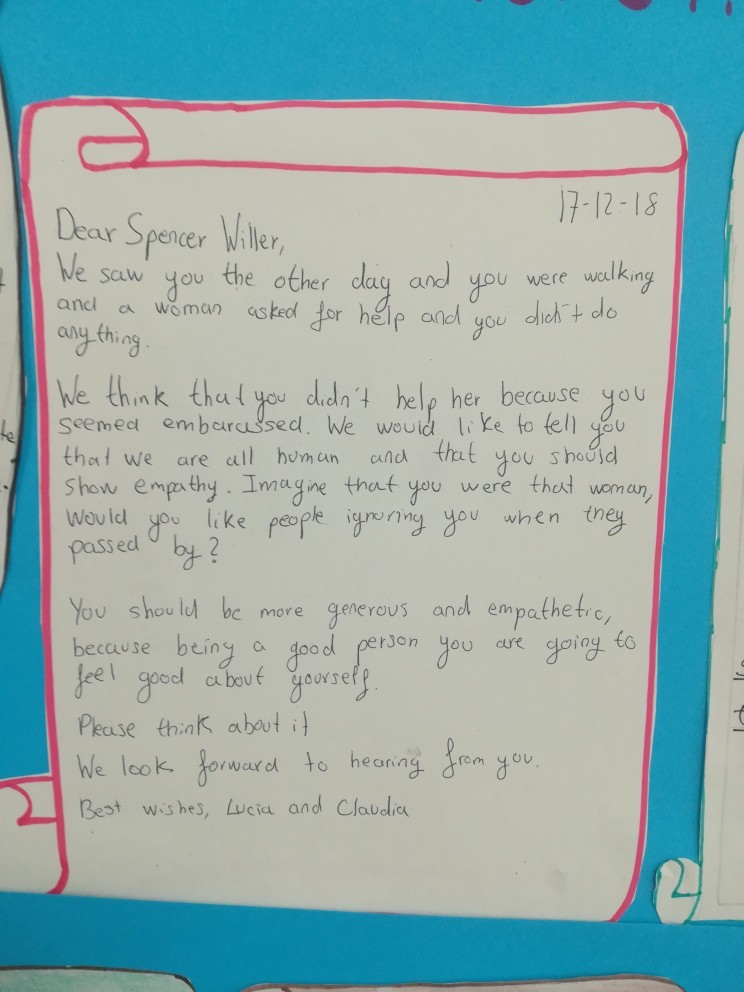 17-12-18
Dear Spencer Willer,
We saw you the other day and you were walking
and a woman asked for help and you didn't do
anything.
We think that you didn't help her because you
seemed embarassed. We would like to tell you
that we are all human and that you should
show empathy. Imagine that you were that woman,
would you like people ignoring you when they
passed by?
You should be more generous and empathetic,
because being a good person you are going to
feel good about yourself.
Please think about it
We look forward to hearing from you.
Best wishes, Lucia and Claudia